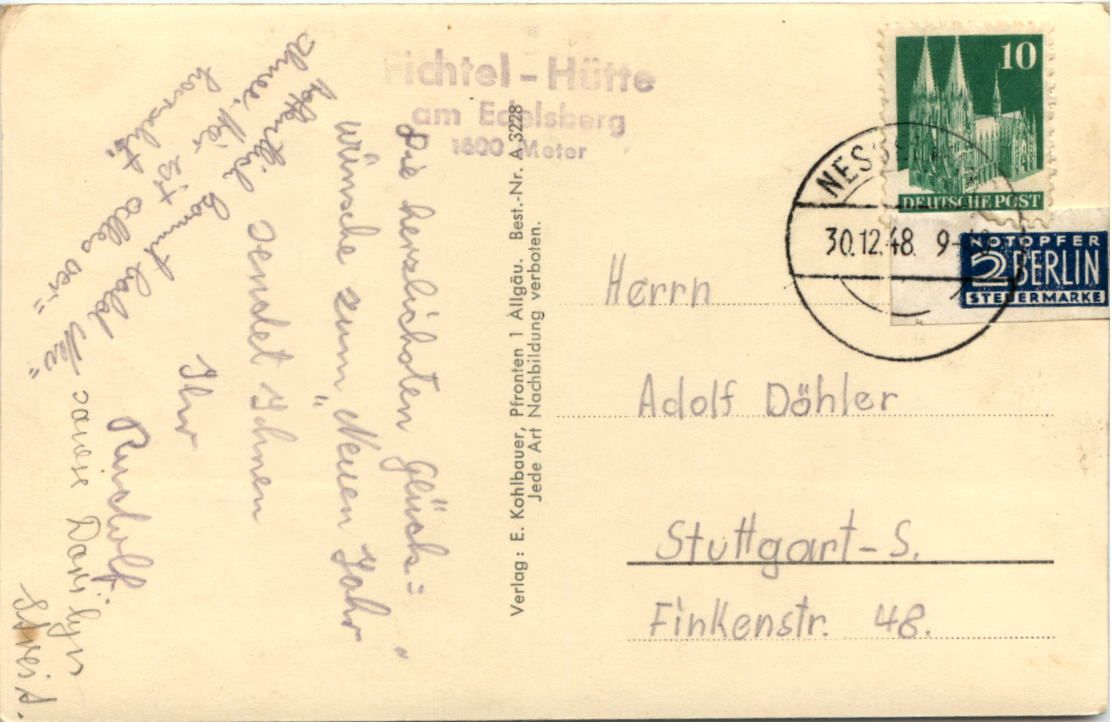 Fichtel-Hütte
am Edelsberg
1600 Meter
Die herzlichsten Glück=
wünsche zum „Neuen Jahr"
sendet Ihnen
Ihr
Rudolf
hoffentlich kommt bald
hier ist alles ver=
Verlag: E. Kohlbauer, Pfronten 1 Allgäu. Best.-Nr. A 3228
Jede Art Nachbildung verboten.
10
DEUTSCHE POST
NOTOPFER
2 BERLIN
STEUERMARKE
30.12.48. 9-
Herrn
Adolf Döhler
Stuttgart-S.
Finkenstr. 48.